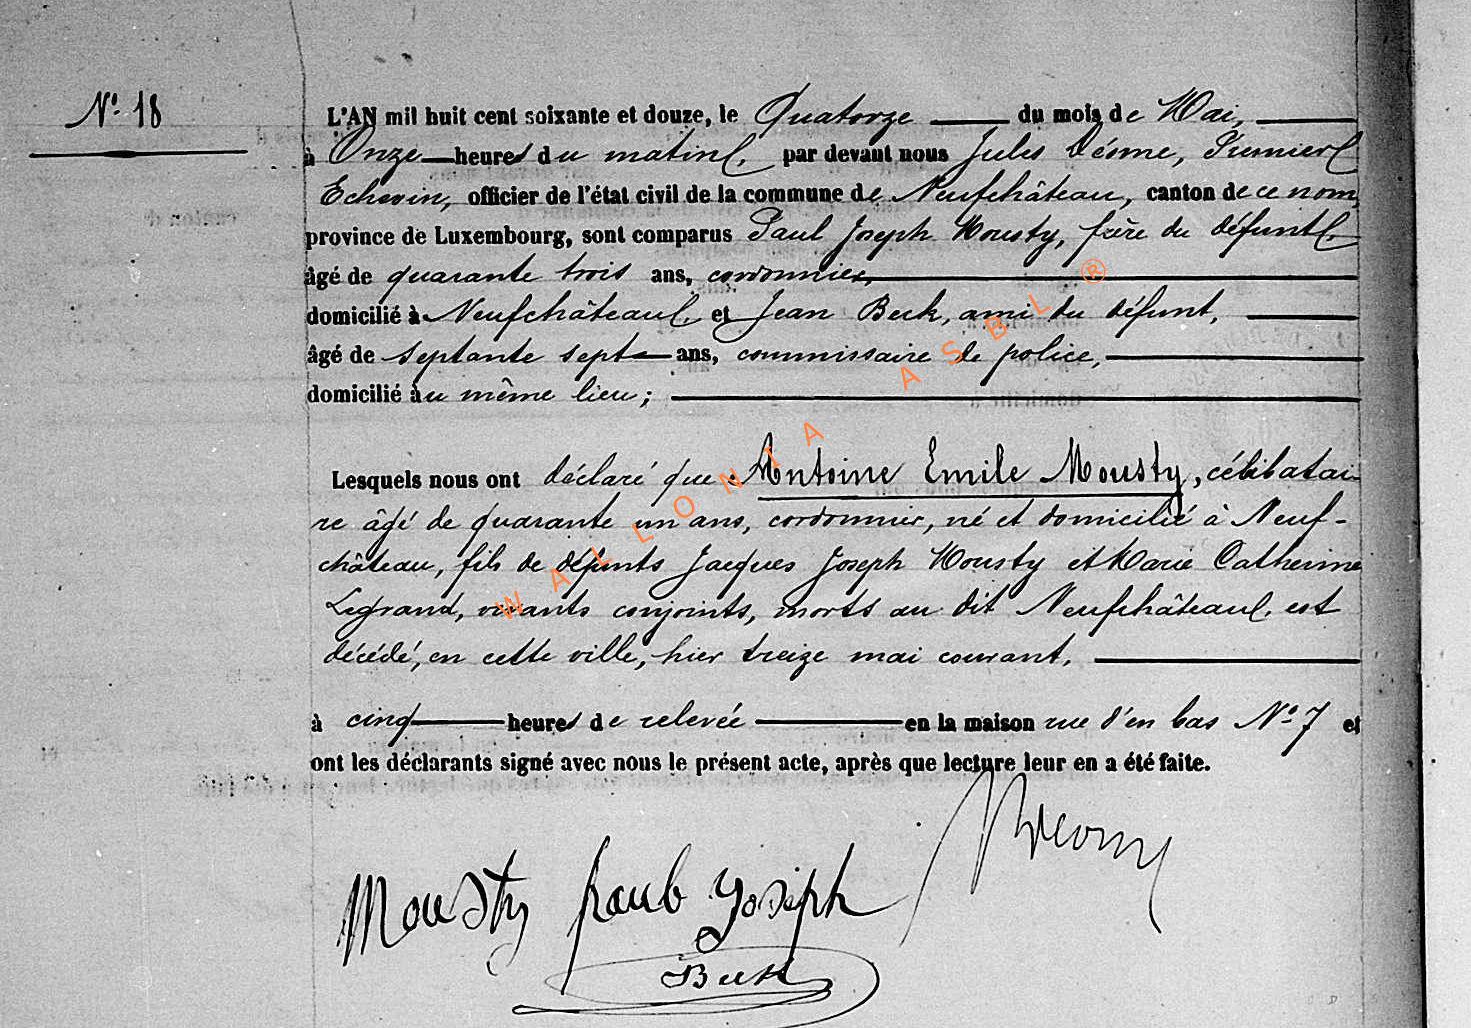 N° 18
L'AN mil huit cent soixante et douze, le Quatorze du mois de Mai,
à Onze heures du matin, par devant nous Jules Désme, Premier
Echevin, officier de l'état civil de la commune de Neufchâteau, canton de ce nom,
province de Luxembourg, sont comparus Paul Joseph Mousty, frère du défunt,
âgé de quarante trois ans, cordonnier,
domicilié à Neufchâteau, et Jean Beck, ami du défunt,
âgé de septante sept ans, commissaire de police,
domicilié au même lieu;
Lesquels nous ont déclaré que Antoine Emile Mousty, célibatai-
re âgé de quarante un ans, cordonnier, né et domicilié à Neuf-
château, fils de défunts Jacques Joseph Mousty et Marie Catherine
Legrand, vivants conjoints, morts au dit Neufchâteau, est
décédé, en cette ville, hier treize mai courant,
à cinq heures de relevée en la maison rue d'en bas N° 7 et
ont les déclarants signé avec nous le présent acte, après que lecture leur en a été faite.
Mousty paul Joseph
Beck
WALLONIA ASBL ®